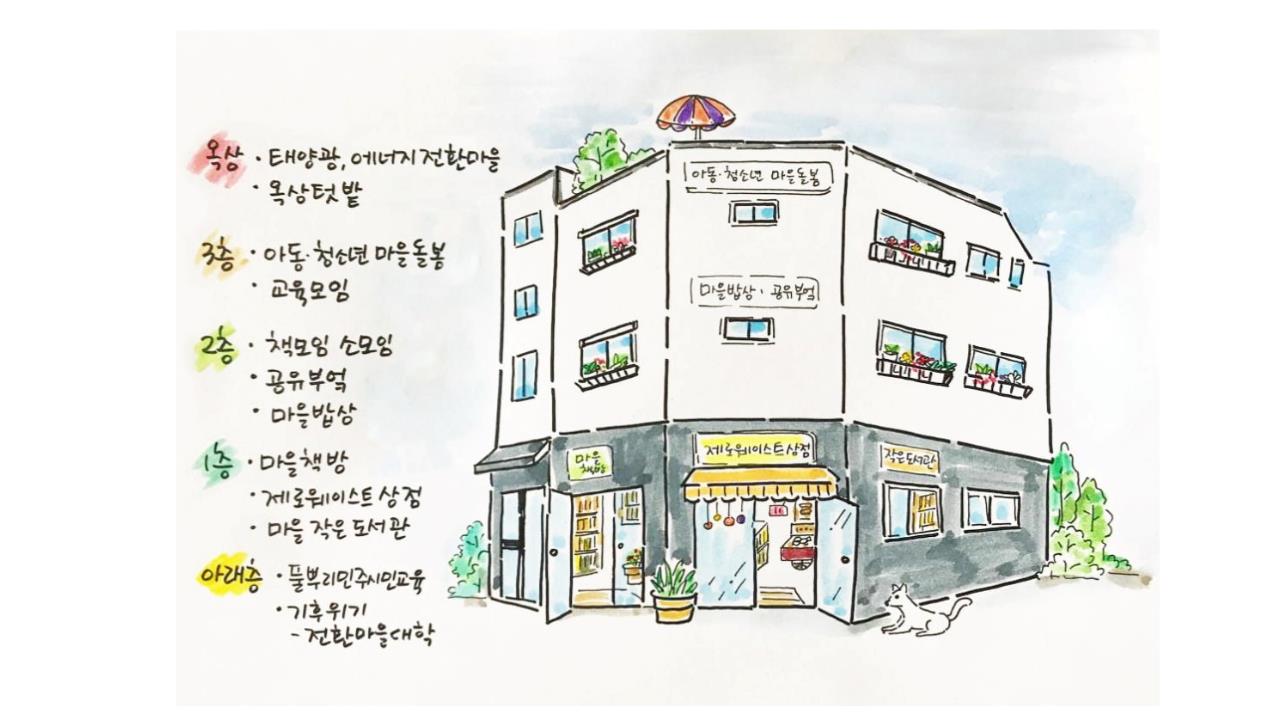 옥상 · 태양광, 에너지전환마을
· 옥상텃밭
3층 · 아동·청소년 마을돌봄
· 교육모임
2층 · 책모임 소모임
· 공유부엌
· 마을밥상
1층 · 마을책방
· 제로웨이스트상점
· 마을 작은 도서관
아래층 · 풀뿌리민주시민교육
· 기후위기
- 전환마을대학
아동·청소년 마을돌봄
마을밥상 · 공유부엌
마을
책방
제로웨이스트상점
작은도서관